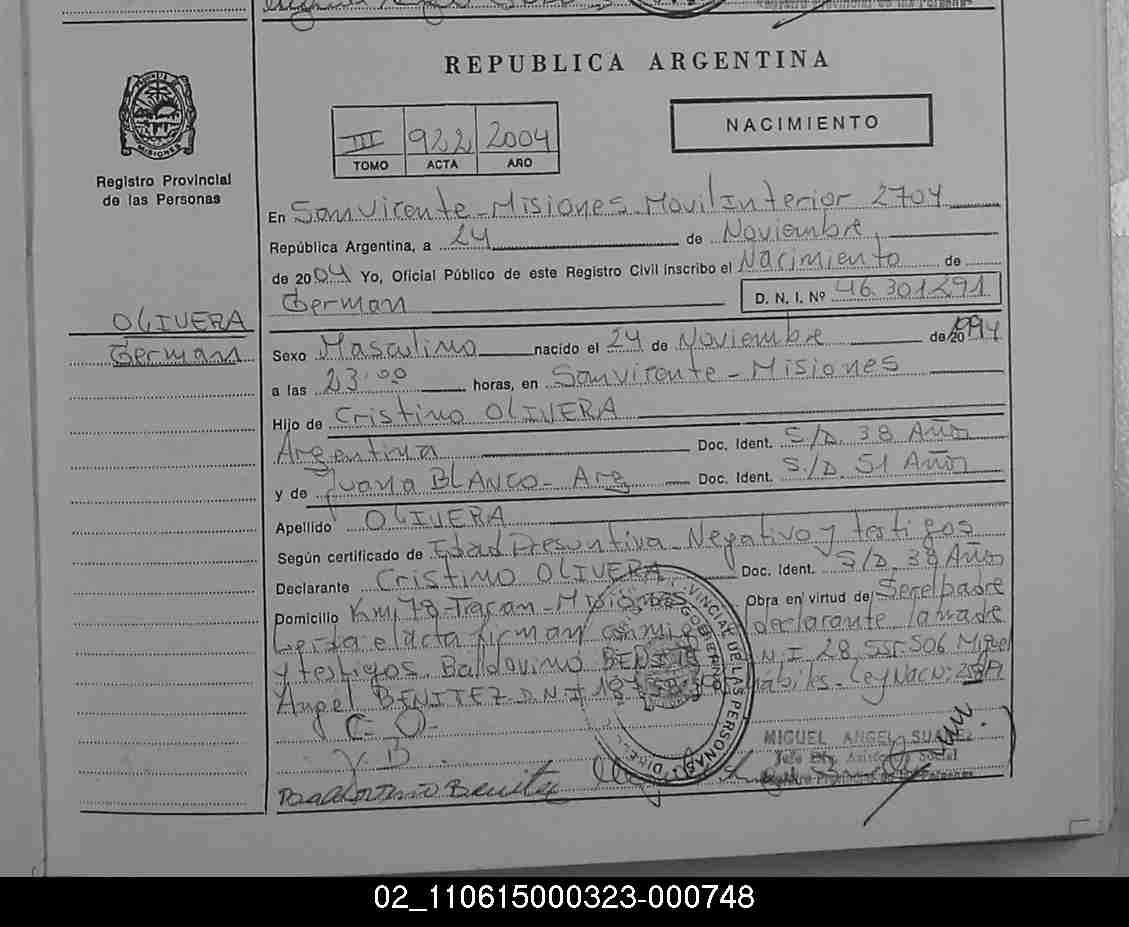 REPUBLICA ARGENTINA
NACIMIENTO
III 922 2004
TOMO ACTA AÑO
MISIONES
Registro Provincial
de las Personas
OLIVERA
German
En San Vicente - Misiones. Movil Interior 2704
República Argentina, a 24 de Noviembre
de 2004 Yo, Oficial Público de este Registro Civil inscribo el Nacimiento de
German D. N. I. Nº 46.301.291
Sexo Masculino nacido el 24 de Noviembre de 20 1994
a las 23:00 horas, en San Vicente - Misiones
Hijo de Cristino OLIVERA
Argentina Doc. Ident. S/D. 38 Años
y de Juana BLANCO - Arg Doc. Ident. S./D. 51 Años
Apellido OLIVERA
Según certificado de Edad Presuntiva - Negativo y testigos
Declarante Cristino OLIVERA Doc. Ident. S/D. 38 Años
Domicilio Km, 78 - - Misiones Obra en virtud de Ser el padre
Leida el acta firman declarante la madre
y testigos. Baldovino D.N.I. 28.555.506 Miguel
Angel BENITEZ D.N.I. hábiles - Ley Nac N:
C. O.
J. B
Benitez
MIGUEL ANGEL SUAREZ
02_110615000323-000748